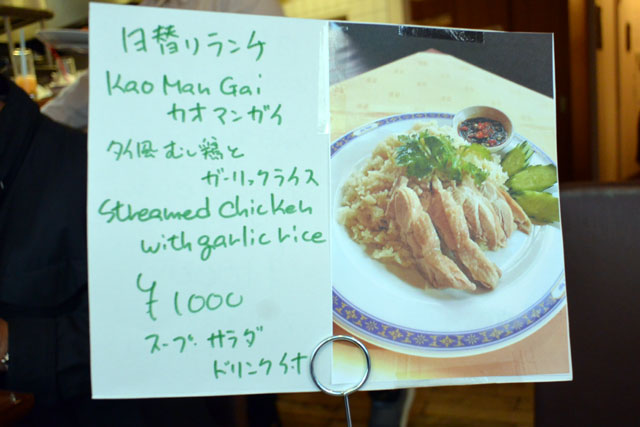 日替りランチ
Kao Man Gai
カオマンガイ
タイ風むし鶏と
ガーリックライス
Streamed Chicken
with garlic rice
¥1000
スープ・サラダ
ドリンク付